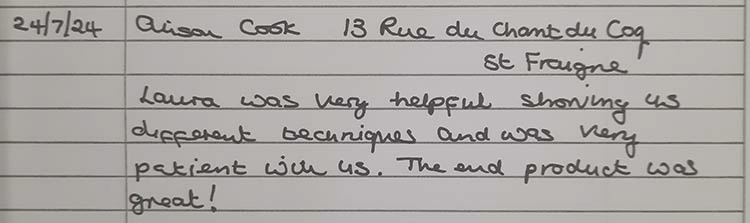 24/7/24 Alison Cook 13 Rue du Chant du Coq
St Fraigne
Laura was very helpful showing us
different techniques and was very
patient with us. The end product was
great!